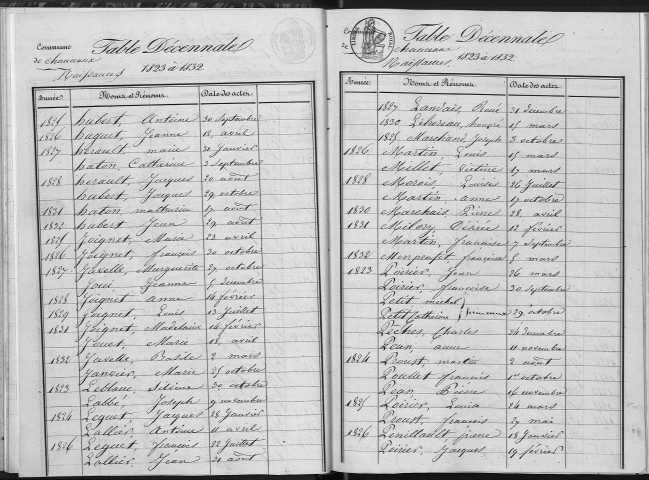 Commune
de Chanceaux
Table Décennale
Naissances 1823 à 1832
Année. Noms et Prénoms. Date des actes.
1825 hubert, Antoine 30 Septembre
1826 huguet, Jeanne 12 avril
1827 herault, marie 30 Janvier
haton, Catherine 3 Septembre
1828 herault, Jacques 20 août
hubert, Jacques 29 octobre
1831 haton, mathurine 17 août
1832 hubert, Jean 29 août
1825 Joignet, Marie 23 avril
1826 Joignet, françois 30 octobre
1827 Javelle, Marguerite 27 octobre
Joui, Jeanne 5 decembre
1828 Joignet, anne 14 février
1829 Joignet, Louis 13 Juillet
1831 Joignet, Madelaine 14 février
Jouet, Marie 18 avril
1832 Javelle, Basile 2 mars
Janvier, Marie 25 octobre
1823 Leblanc, Silvine 30 octobre
Labbé, Joseph 9 novembre
1824 Lequet, Jacques 28 Janvier
Lallier, Antoine 11 avril
1826 Lequet, françois 22 Juillet
Lallier, Jean 21 août
Commune
de Chanceaux
Table Décennale
Naissances, 1823 à 1832
Année. Noms et Prénoms. Date des actes.
1827 Landais, René 31 decembre
1830 15 mars
1825 Marchand, Joseph 3 octobre
1826 Martin, Louis 15 mars
Millet, Victoire 17 mars
1828 Marois, Louise 26 Juillet
Martin, Anne 17 octobre
1830 Marchais, Pierre 28 avril
1831 Désirée 12 février
Martin, françoise 7 Septembre
1832 Monprofit, françoise 5 mars
1823 Poirier, Jean 26 mars
Poirier, françoise 30 Septembre
Petit michel
Petit Catherine } jumeaux 29 octobre
Charles 24 decembre
Pean, anne 11 novembre
1824 Proust, martin 2 août
Poullet, françois 1er octobre
Pean, Pierre 16 novembre
1825 Poirier, Louise 24 mars
Proust, françois 29 mai
1826 Penillault, pierre 18 Janvier
Poirier, Jacques 19 février